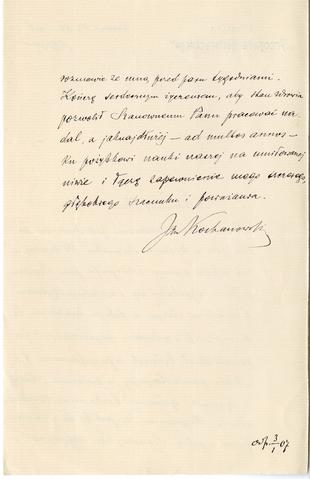 rozmowie ze mną przed paru tygodniami.
Kończę serdecznym życzeniem, aby stan zdrowia
pozwolił Szanownemu Panu pracować na-
dal, a jaknajdłużej – ad multos annos –
ku pożytkowi nauki naszej na umiłowanej
niwie i łączę zapewnienie mego szczerego,
głębokiego szacunku i poważania.
Jan Kochanowski
odp. 3/1 07